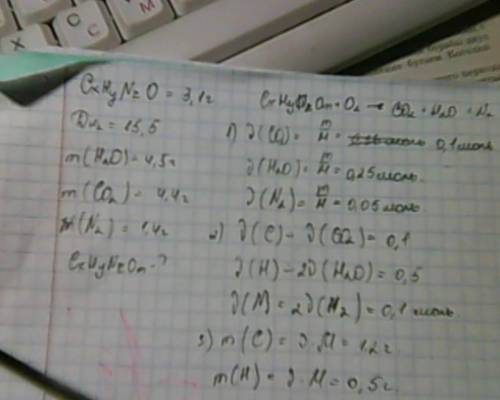 CxHyNzO = 3,1г
DH₂ = 15,5
m(H₂O) = 4,5г
m(CO₂) = 4,4г
m(N₂) = 1,4г
CxHyNzOm - ?
CxHyNzOm + O₂ → CO₂ + H₂O + N₂
1) ν(CO₂) = m/M = 0,1 моль
ν(H₂O) = m/M = 0,25 моль.
ν(N₂) = m/M = 0,05 моль
2) ν(C) - ν(CO₂) = 0,1
ν(H) - 2ν(H₂O) = 0,5
ν(N) = 2ν(N₂) = 0,1 моль
3) m(C) = ν·M = 1,2 г
m(H) = ν·M = 0,5 г.